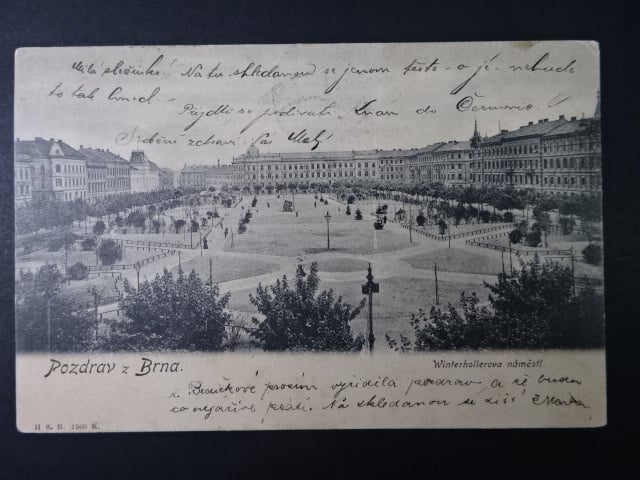 Milá slečinko! Na tu shledanou se jenom těště - a já - nebude
to tak hned.
Půjdu se podívati k vám do Černovic!
Srdečně zdraví Vás Malý
Pozdrav z Brna.
Winterhollerova náměstí.
prosím vyřídila pozdrav a že budu
co nejdříve psáti. Na shledanou se těší
H S. B. 1560 K.